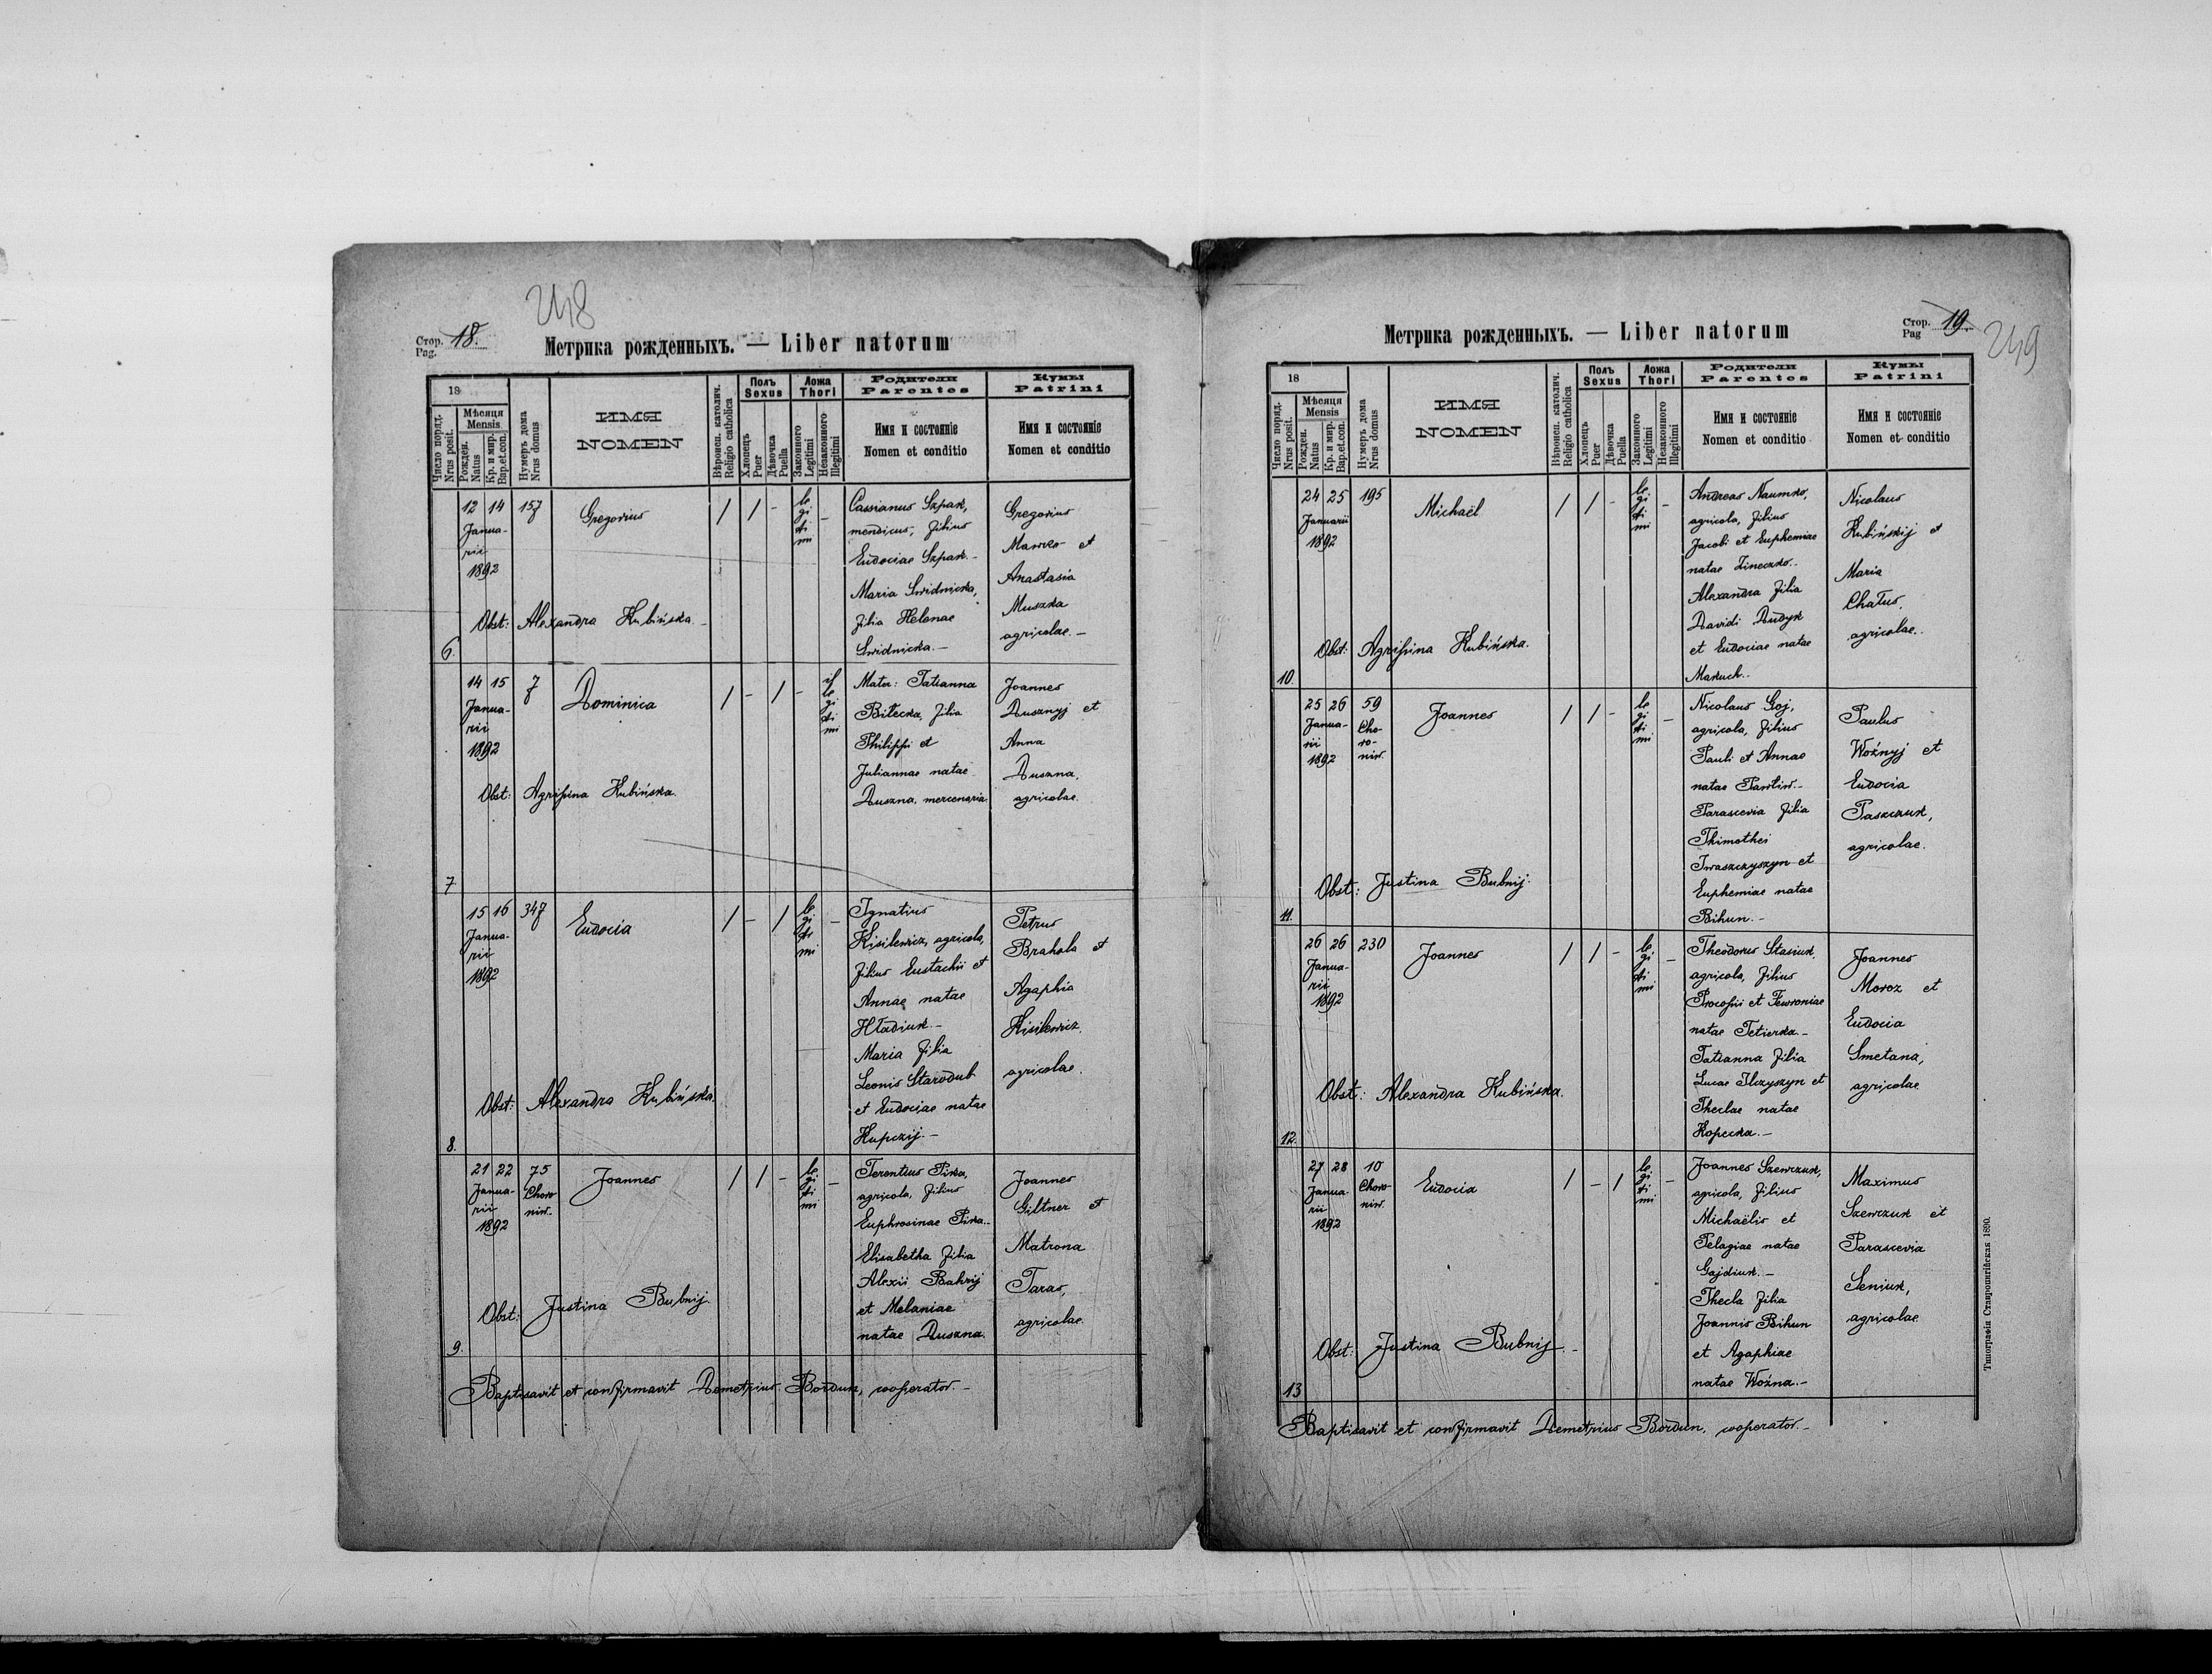 248
Стор. 18.
Pag.
Метрика рожденныхъ. — Liber natorum
18
Число поряд.
Nrus posit.
Мѣсяця
Mensis
Рожден.
Natus
Кр. и мир.
Bap.et.con.
Нумеръ дома
Nrus domus
ИМЯ
NOMEN
Вѣроисп. католич.
Religio catholica
Полъ
Sexus
Хлопецъ
Puer
Дѣвочка
Puella
Ложа
Thori
Законного
Legitimi
Незаконного
Illegitimi
Родители
Parentes
Имя и состояніе
Nomen et conditio
Кумы
Patrini
Имя и состояніе
Nomen et conditio
6.
12 14
Janua-
rii
1892
157
Gregorius
/ / -
le
gi
ti
mi
-
Cassianus Szpak,
mendicus, filius
Eudociae Szpak.-
Maria Swidnicka,
filia Helenae
Swidnicka.-
Gregorius
Mawko et
Anastasia
Muszka
agricolae.-
Obst: Alexandra Kubińska.-
7
14 15
Janua-
rii
1892
7
Dominica
/ - / -
il
le
gi
ti
mi
Mater: Tatianna
Bitecka, filia
Philippi et
Juliannae natae
Duszna, mercenaria
Joannes
Dusznyj et
Anna
Duszna,
agricolae.
Obst: Agripina Kubińska.
8.
15 16
Janua-
rii
1892
347
Eudocia
/ - /
le
gi
ti
mi
-
Ignatius
Kisilewicz, agricola,
filius Eustachii et
Annae natae
Hładiuk.-
Maria filia
Leonis Starodub
et Eudociae natae
Kupczij.-
Petrus
Brahola et
Agaphia
Kisilewicz,
agricolae.
Obst: Alexandra Kubińska.
9.
21 22
Janua-
rii
1892
75
Choro-
niw.
Joannes
/ / -
le
gi
ti
mi
-
Terentius Pika,
agricola, filius
Euphrosinae Pika.-
Elisabetha filia
Alexii Bahrij
et Melaniae
natae Duszna.
Joannes
Giltner et
Matrona
Taras,
agricolae.
Obst: Justina Bubnij.
Baptisavit et confirmavit Demetrius Bordun, cooperator.-
Стор. 19.
Pag
249
Метрика рожденныхъ. — Liber natorum
18
Число поряд.
Nrus posit.
Мѣсяця
Mensis
Рожден.
Natus
Кр. и мир.
Bap.et.con.
Нумеръ дома
Nrus domus
ИМЯ
NOMEN
Вѣроисп. католич.
Religio catholica
Полъ
Sexus
Хлопецъ
Puer
Дѣвочка
Puella
Ложа
Thori
Законного
Legitimi
Незаконного
Illegitimi
Родители
Parentes
Имя и состояніе
Nomen et conditio
Кумы
Patrini
Имя и состояніе
Nomen et conditio
10.
24 25
Januarii
1892
195
Michaël
/ / -
le
gi
ti
mi
-
Andreas Naumko,
agricola, filius
Jacobi et Euphemiae
natae Zineczko.-
Alexandra filia
Davidi Dudyk
et Eudociae natae
Makuch.-
Nicolaus
Kubińskij et
Maria
Chatus,
agricolae.
Obst: Agripina Kubińska.
11.
25 26
Janua-
rii
1892
59
Cho-
ro-
niw.
Joannes
/ / -
le
gi
ti
mi
-
Nicolaus Goj,
agricola, filius
Pauli et Annae
natae Pawliw.-
Parascevia filia
Thimothei
Iwaszczyszyn et
Euphemiae natae
Bihun.-
Paulus
Woźnyj et
Eudocia
Paszczuk,
agricolae.
Obst: Justina Bubnij.
12.
26 26
Janua-
rii
1892
230
Joannes
/ / -
le
gi
ti
mi
-
Theodorus Stasiuk,
agricola, filius
Procopii et Fewroniae
natae Tetierka.-
Tatianna filia
Lucae Ilczyszyn et
Theclae natae
Kopecka.-
Joannes
Moroz et
Eudocia
Smetana,
agricolae
Obst: Alexandra Kubińska.
13
27 28
Janua-
rii
1892
10
Choro-
niw.
Eudocia
/ - /
le
gi
ti
mi
-
Joannes Szewczuk,
agricola, filius
Michaëlis et
Pelagiae natae
Gajdiuk.-
Thecla filia
Joannis Bihun
et Agaphiae
natae Woźna.-
Maximus
Szewczuk et
Parascevia
Seniuk,
agricolae
Obst: Justina Bubnij.-
Baptisavit et confirmavit Demetrius Bordun, cooperator.-
Типографія Ставропигійская 1890.